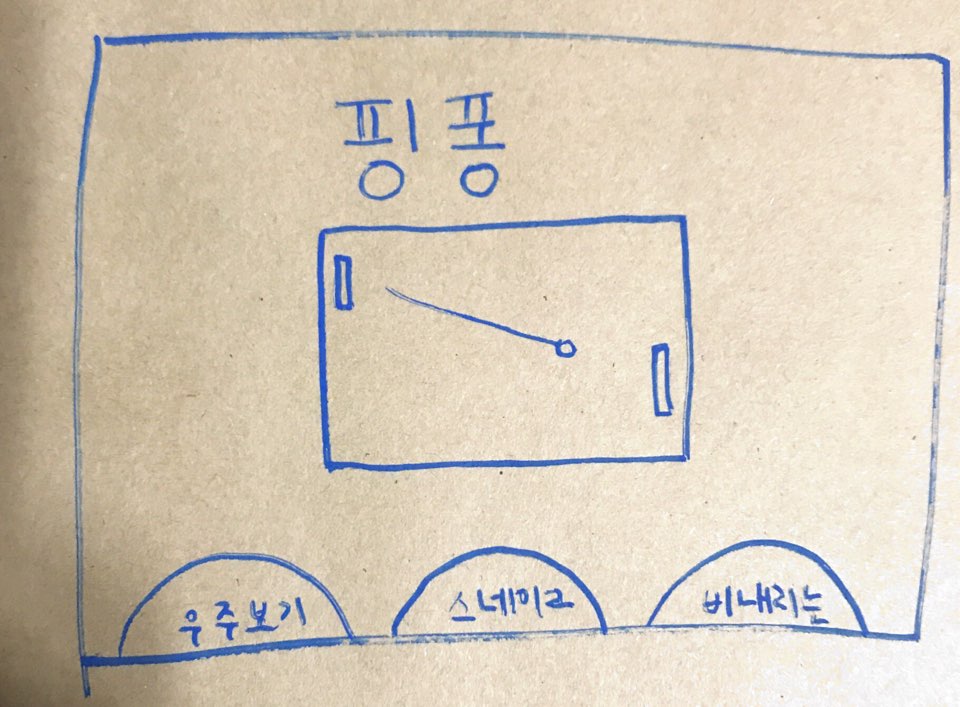 핑퐁
우주보기
스네이크
비내리는